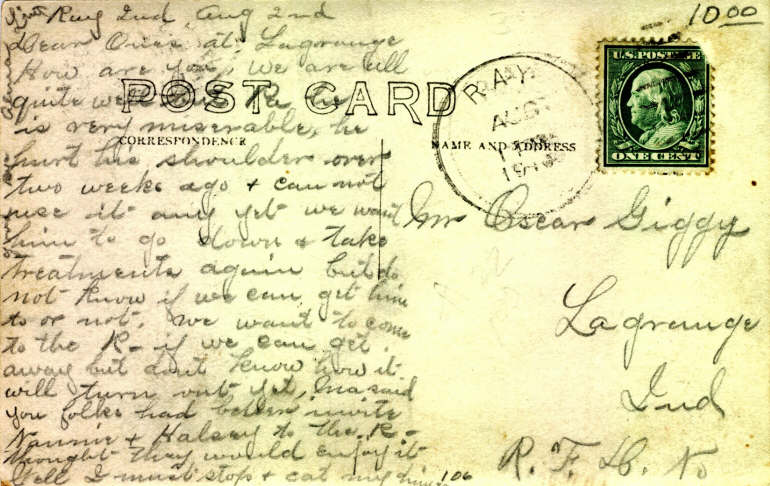 Ray Ind, Aug 2nd
Dear Ones at Lagrange
How are you, we are all
quite well but Pa, he
is very miserable, he
hurt his shoulder over
two weeks ago + can not
use it any yet we want
him to go down + take
treatments again but do
not know if we can get him
to or not. We want to come
to the R- if we can get
away but dont know how it
will turn out yet, Ma said
you folks had better invite
Nannie + Halsey to the R-
thought they would enjoy it
Well I must stop + eat my dinner
POST CARD
CORRESPONDENCE
NAME AND ADDRESS
RAY
AUG
10 00
U.S. POSTAGE
ONE CENT
Mr Oscar Giggy
Lagrange
Ind
R. F. D. No
106